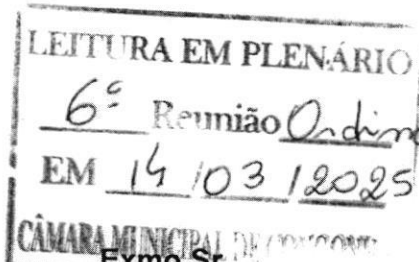 LEITURA EM PLENÁRIO
6ª Reunião Ordin
EM 14/03/2025
CÂMARA MUNICIPAL DE
Exmo Sr.